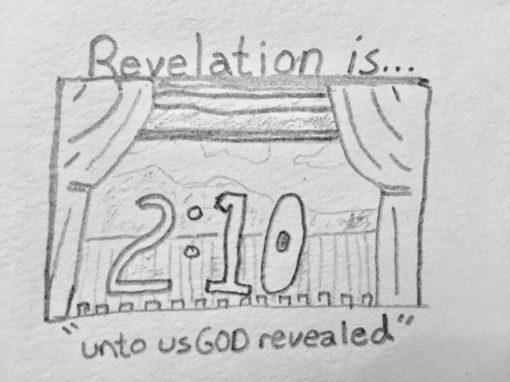 Revelation is...
2:10
"unto us GOD revealed"